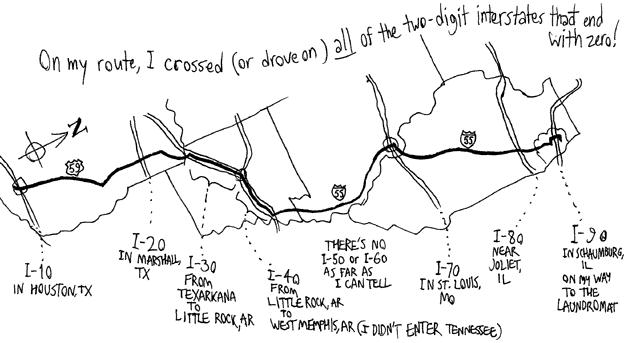 On my route, I crossed (or drove on) all of the two-digit interstates that end
with zero!
N
59
55
55
I-10
IN HOUSTON, TX
I-20
IN MARSHALL,
TX
I-30
FROM
TEXARKANA
TO
LITTLE ROCK, AR
I-40
FROM
LITTLE ROCK, AR
TO
WEST MEMPHIS, AR (I DIDN'T ENTER TENNESSEE)
THERE'S NO
I-50 OR I-60
AS FAR AS
I CAN TELL
I-70
IN ST. LOUIS,
MO
I-80
NEAR
JOLIET,
IL
I-90
IN SCHAUMBURG,
IL
ON MY WAY
TO THE
LAUNDROMAT